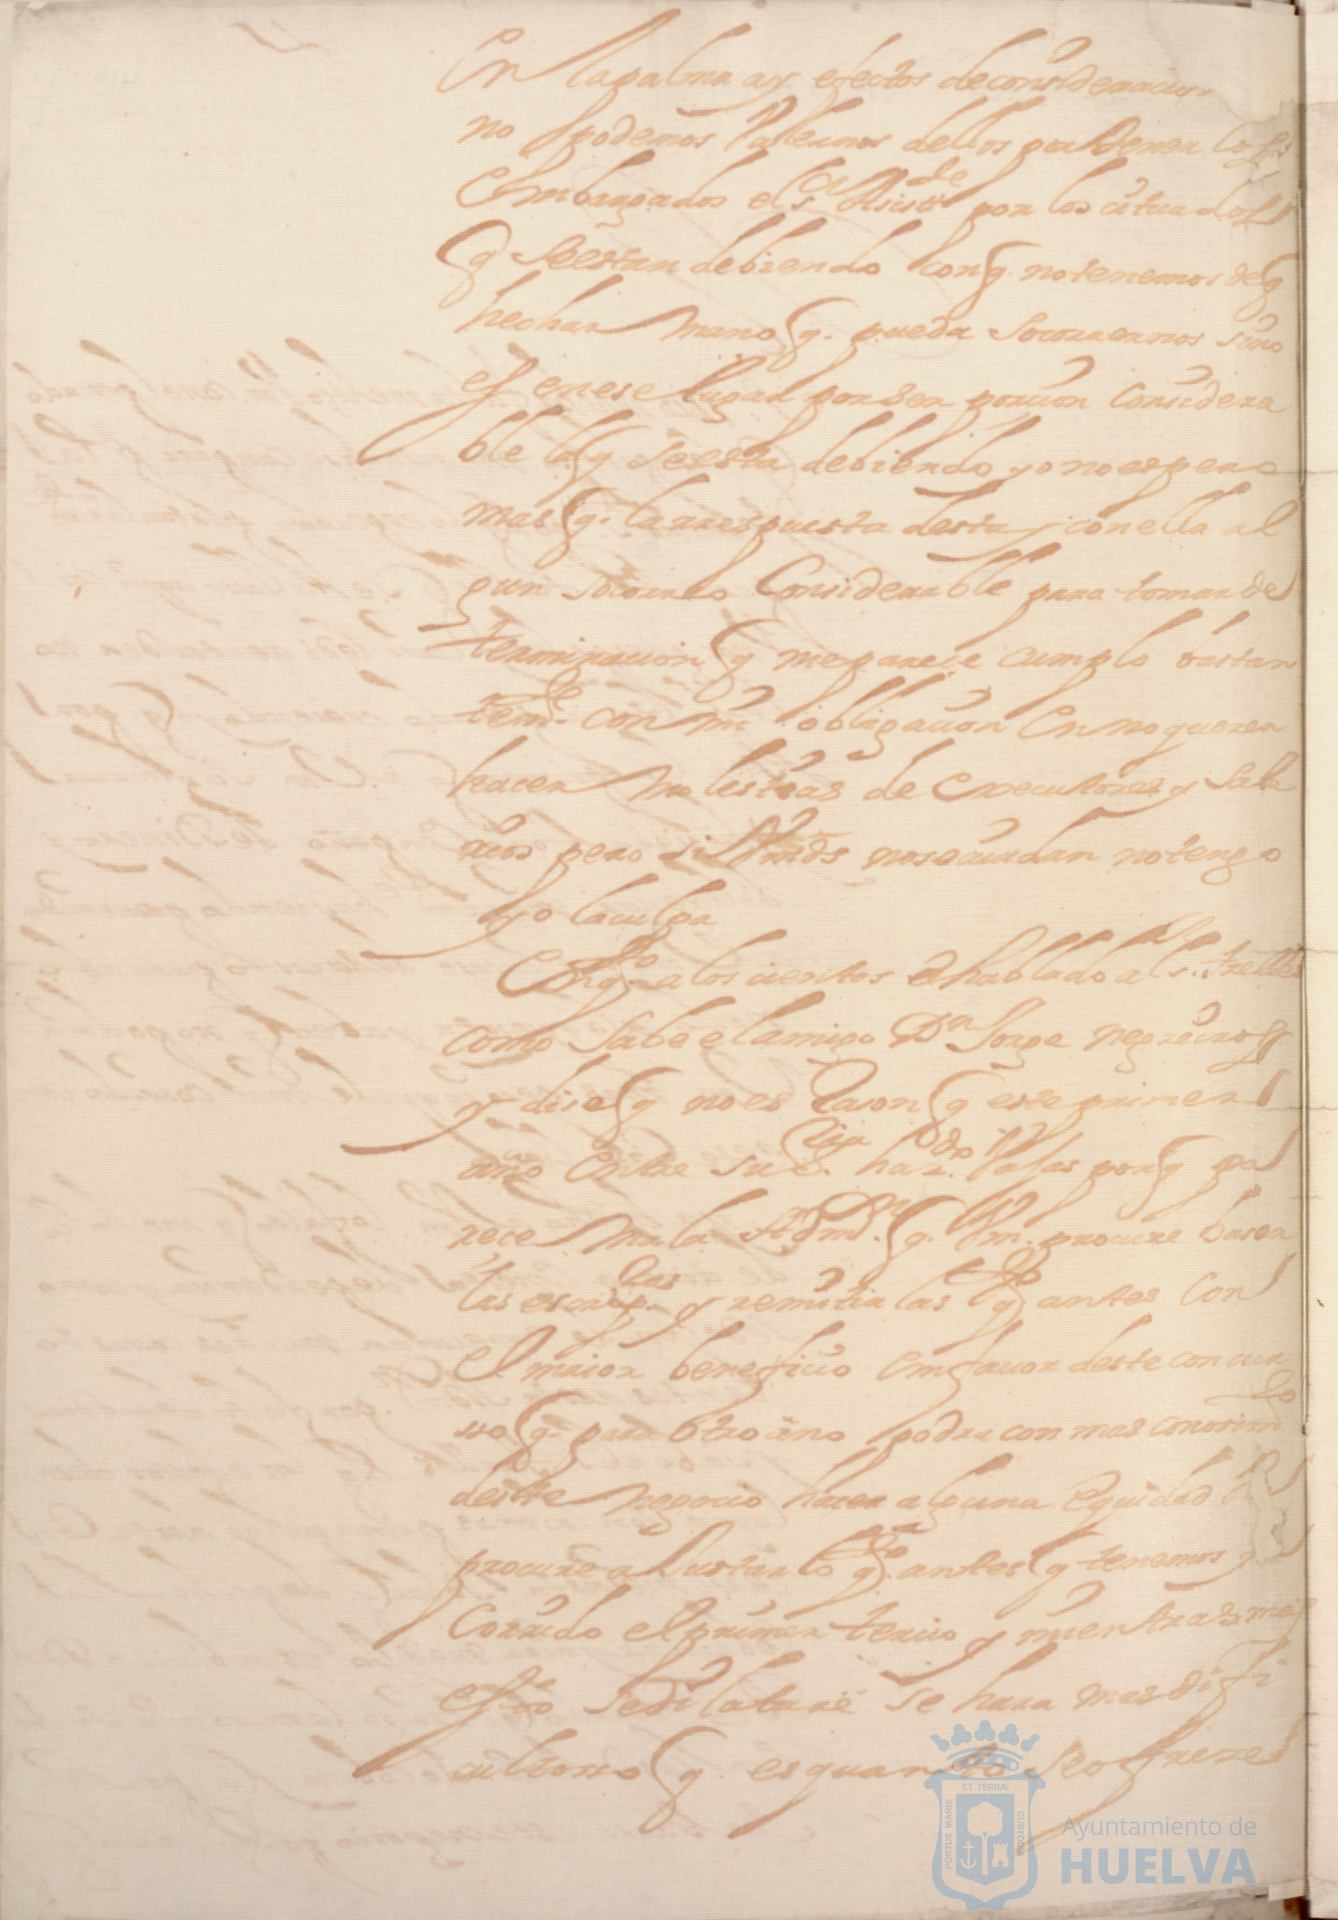 En lapalma ay efectos deconsideracion
no podemos Valernos dellos por tener los
Embargados el sr Asistte por los situados
q Seestan debiendo conq notenemos deq
hechar mano q. pueda Socorrernos sino
es enese lugar porser porcion Considera
ble laq seesta debiendo yo noespero
mas q. larrespuesta desta y conella al
gun socorro Considerable para tomar de
terminacion q meparece cumplo bastan
temte con mi obligacion En noquerer
hacer molestias de Executores y Sala
rios pero si Vmds noseaiudan notengo
yo laculpa
Enqto alos cientos e hablado al sr.
como Sabe elamigo Dn Jorge negreiros
y dise q no es Rason q esteprimer
año Entre su hazda. porq pa
rece mala Admon. q. Vm. procure hacer
las escripras y remitirlas qto antes Con
El maior beneficio enfavor deste concur
so q. para otro año podra con mas conosimto
deste negocio hacer alguna Equidad
procure aJustarlo qto antes q tenemos ya
Corrido el primer tercio y mientras mas
esto sedilatare se hara mas difi
cultoso q es quanto seofreze
PORTUS MARIS
ET TERRÆ
CUSTODIA
Ayuntamiento de
HUELVA